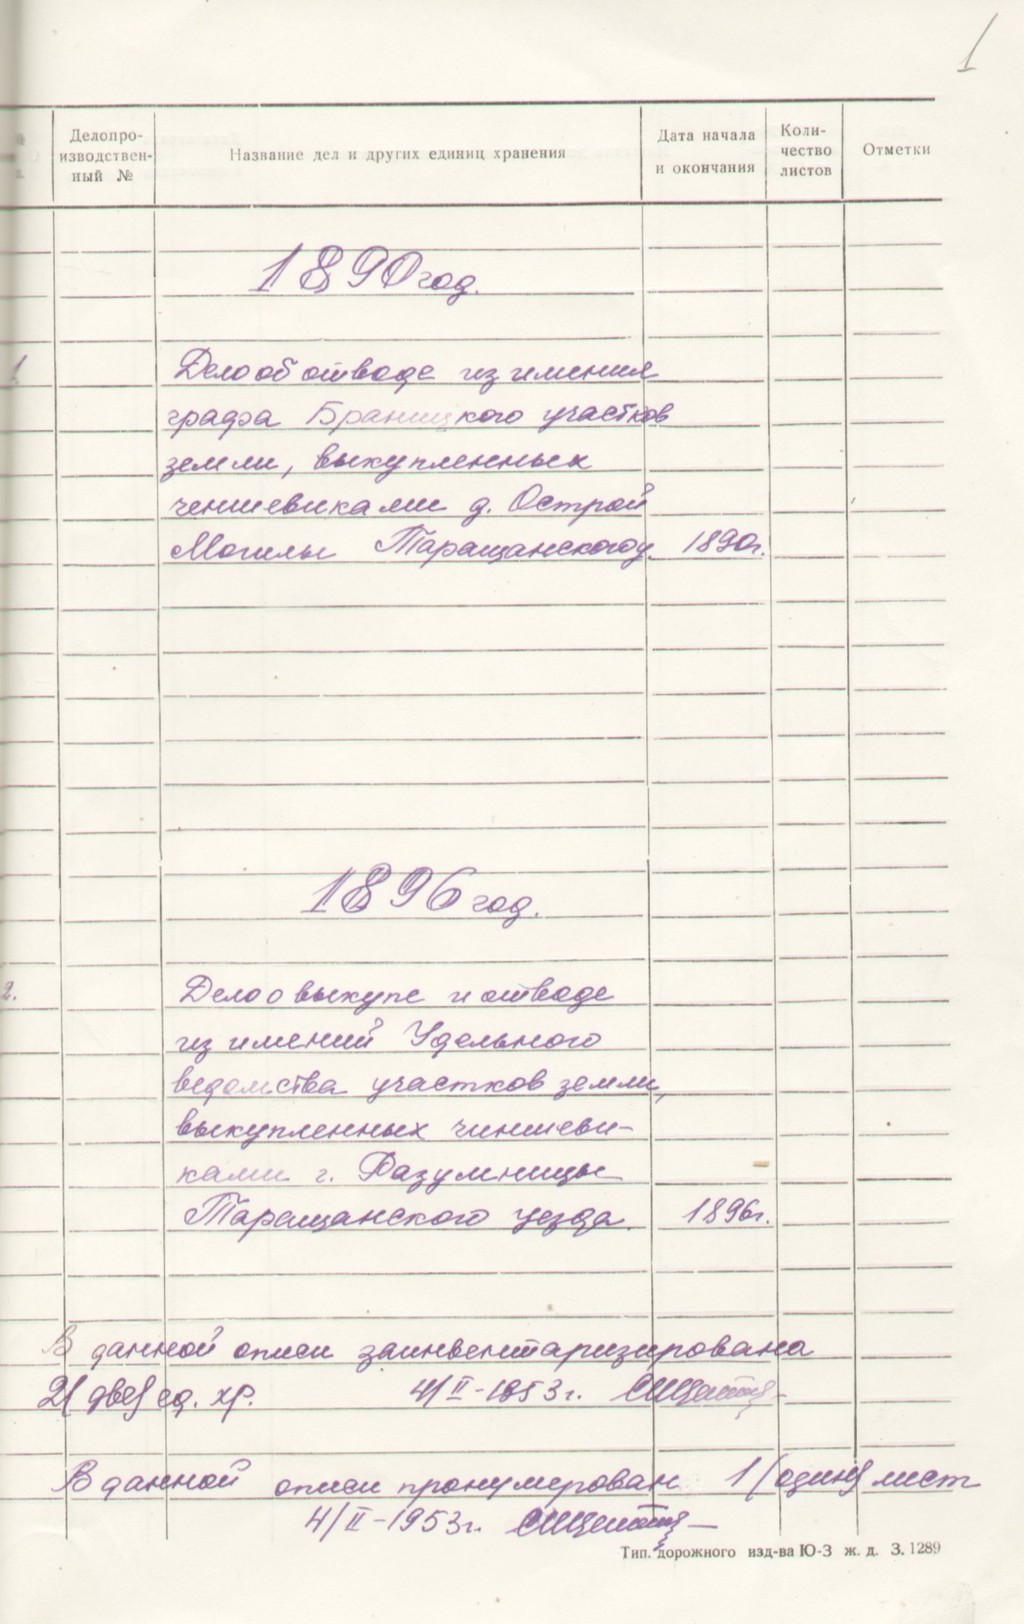 1
Делопро-
изводствен-
ный №
Название дел и других единиц хранения
Дата начала
и окончания
Коли-
чество
листов
Отметки
1890 год.
1.
Дело об отводе из имения
графа Браницкого участков
земли, выкупленных
чиншевиками д. Острой
Могилы Таращанского у. 1890г.
1896 год.
2.
Дело о выкупе и отводе
из имений Удельного
ведомства участков земли,
выкупленных чиншеви-
ками г. Разумницы
Таращанского уезда. 1896г.
В данной описи заинвентаризирована
2 (две) ед. хр. 4/II-1953г.
В данной описи пронумерован 1 (один) лист
4/II-1953г.
Тип. дорожного изд-ва Ю-З ж. д. З. 1289